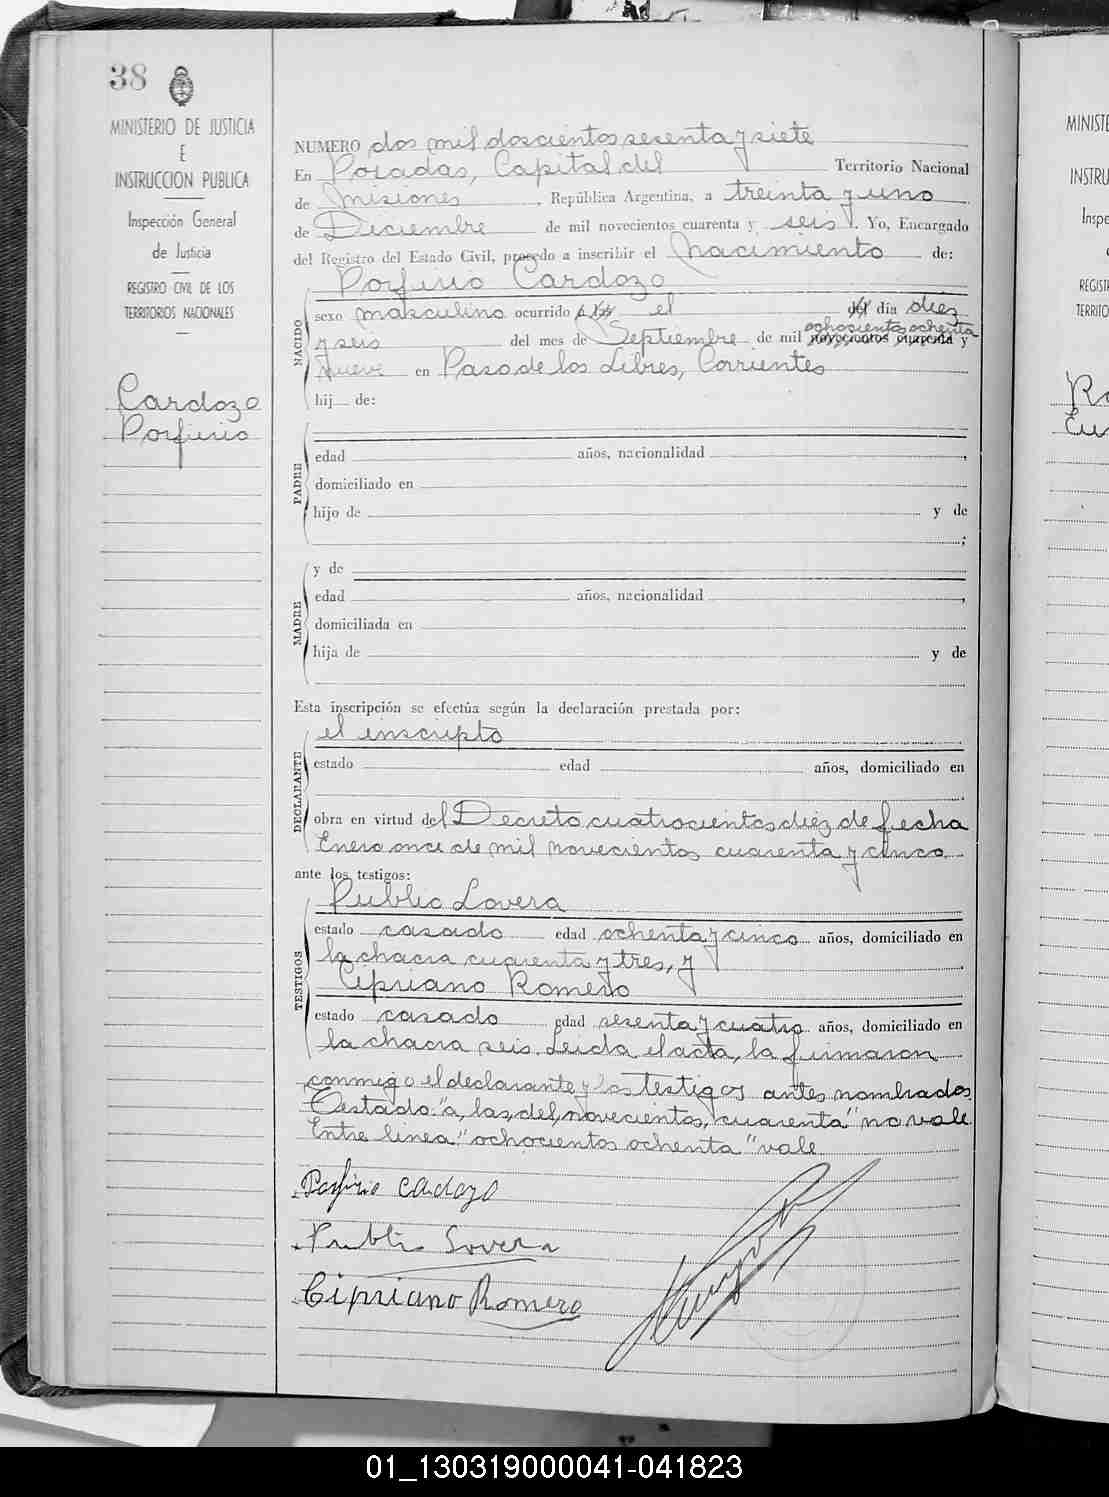 38
MINISTERIO DE JUSTICIA
E
INSTRUCCION PUBLICA
Inspección General
de Justicia
REGISTRO CIVIL DE LOS
TERRITORIOS NACIONALES
Cardozo
Porfirio
NUMERO dos mil doscientos sesenta y siete
En Posadas, Capital del Territorio Nacional
de Misiones, República Argentina, a treinta y uno
de Diciembre de mil novecientos cuarenta y seis. Yo, Encargado
del Registro del Estado Civil, procedo a inscribir el nacimiento de:
Porfirio Cardozo
NACIDO
sexo masculino ocurrido a las el del día diez
ochocientos ochenta
y seis del mes de Septiembre de mil novecientos cuarenta y
nueve en Paso de los Libres, Corrientes
hij de:
PADRE
edad años, nacionalidad ,
domiciliado en
hijo de y de
;
MADRE
y de
edad años, nacionalidad ,
domiciliada en
hija de y de
Esta inscripción se efectúa según la declaración prestada por:
DECLARANTE
el inscripto
estado edad años, domiciliado en
.
obra en virtud del Decreto cuatrocientos diez de fecha
Enero once de mil novecientos cuarenta y cinco
ante los testigos:
TESTIGOS
Publio Lovera
estado casado edad ochenta y cinco años, domiciliado en
la chacra cuarenta y tres, y
Cipriano Romero
estado casado edad sesenta y cuatro años, domiciliado en
la chacra seis. Leida el acta, la firmaron
conmigo el declarante y los testigos antes nombrados
Testado: "a, las, del, novecientos, cuarenta" no vale
Entre linea "ochocientos ochenta" vale
Porfirio Cardozo
Publio Lovera
Cipriano Romero
MINISTE
INSTRU
Inspe
REGIST
TERRITO
01_130319000041-041823